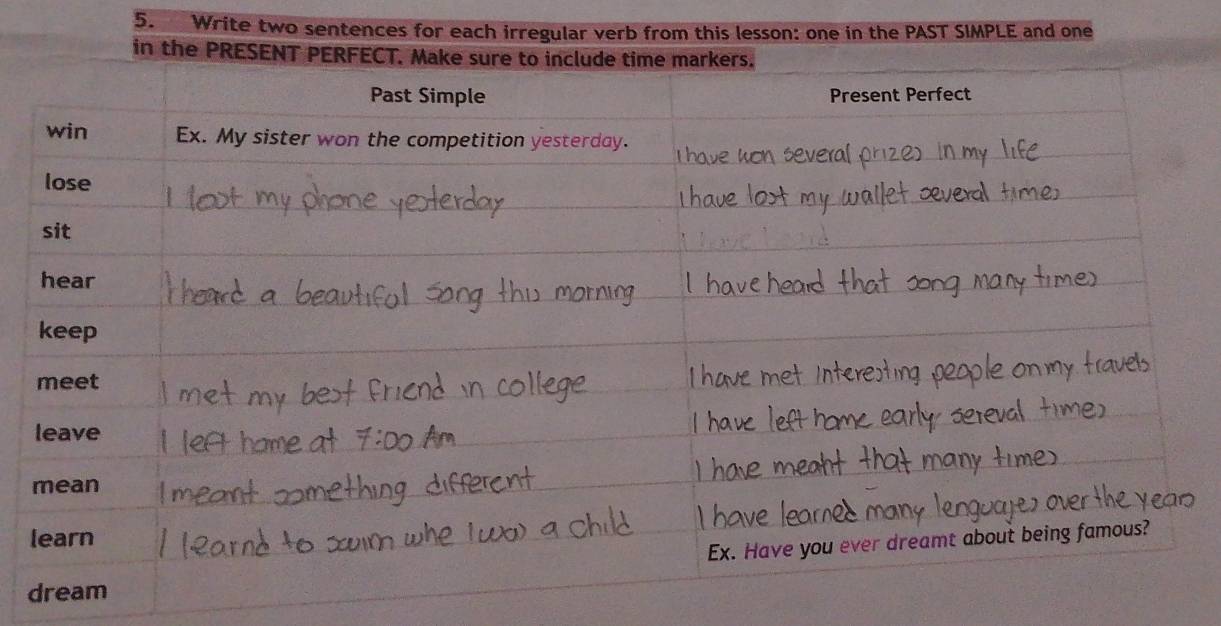 5. Write two sentences for each irregular verb from this lesson: one in the PAST SIMPLE and one
in the PRESENT PERFECT. Make sure to include time markers.
Past Simple Present Perfect
win Ex. My sister won the competition yesterday. I have won several prizes in my life
lose I lost my phone yesterday I have lost my wallet several times
sit I have heard
hear I heard a beautiful song this morning I have heard that song many times
keep
meet I met my best friend in college I have met interesting people on my travels
leave I left home at 7:00 Am I have left home early sereval times
mean I meant something different I have meant that many times
learn I learnd to swim whe I was a child I have learned many lenguages over the years
dream Ex. Have you ever dreamt about being famous?